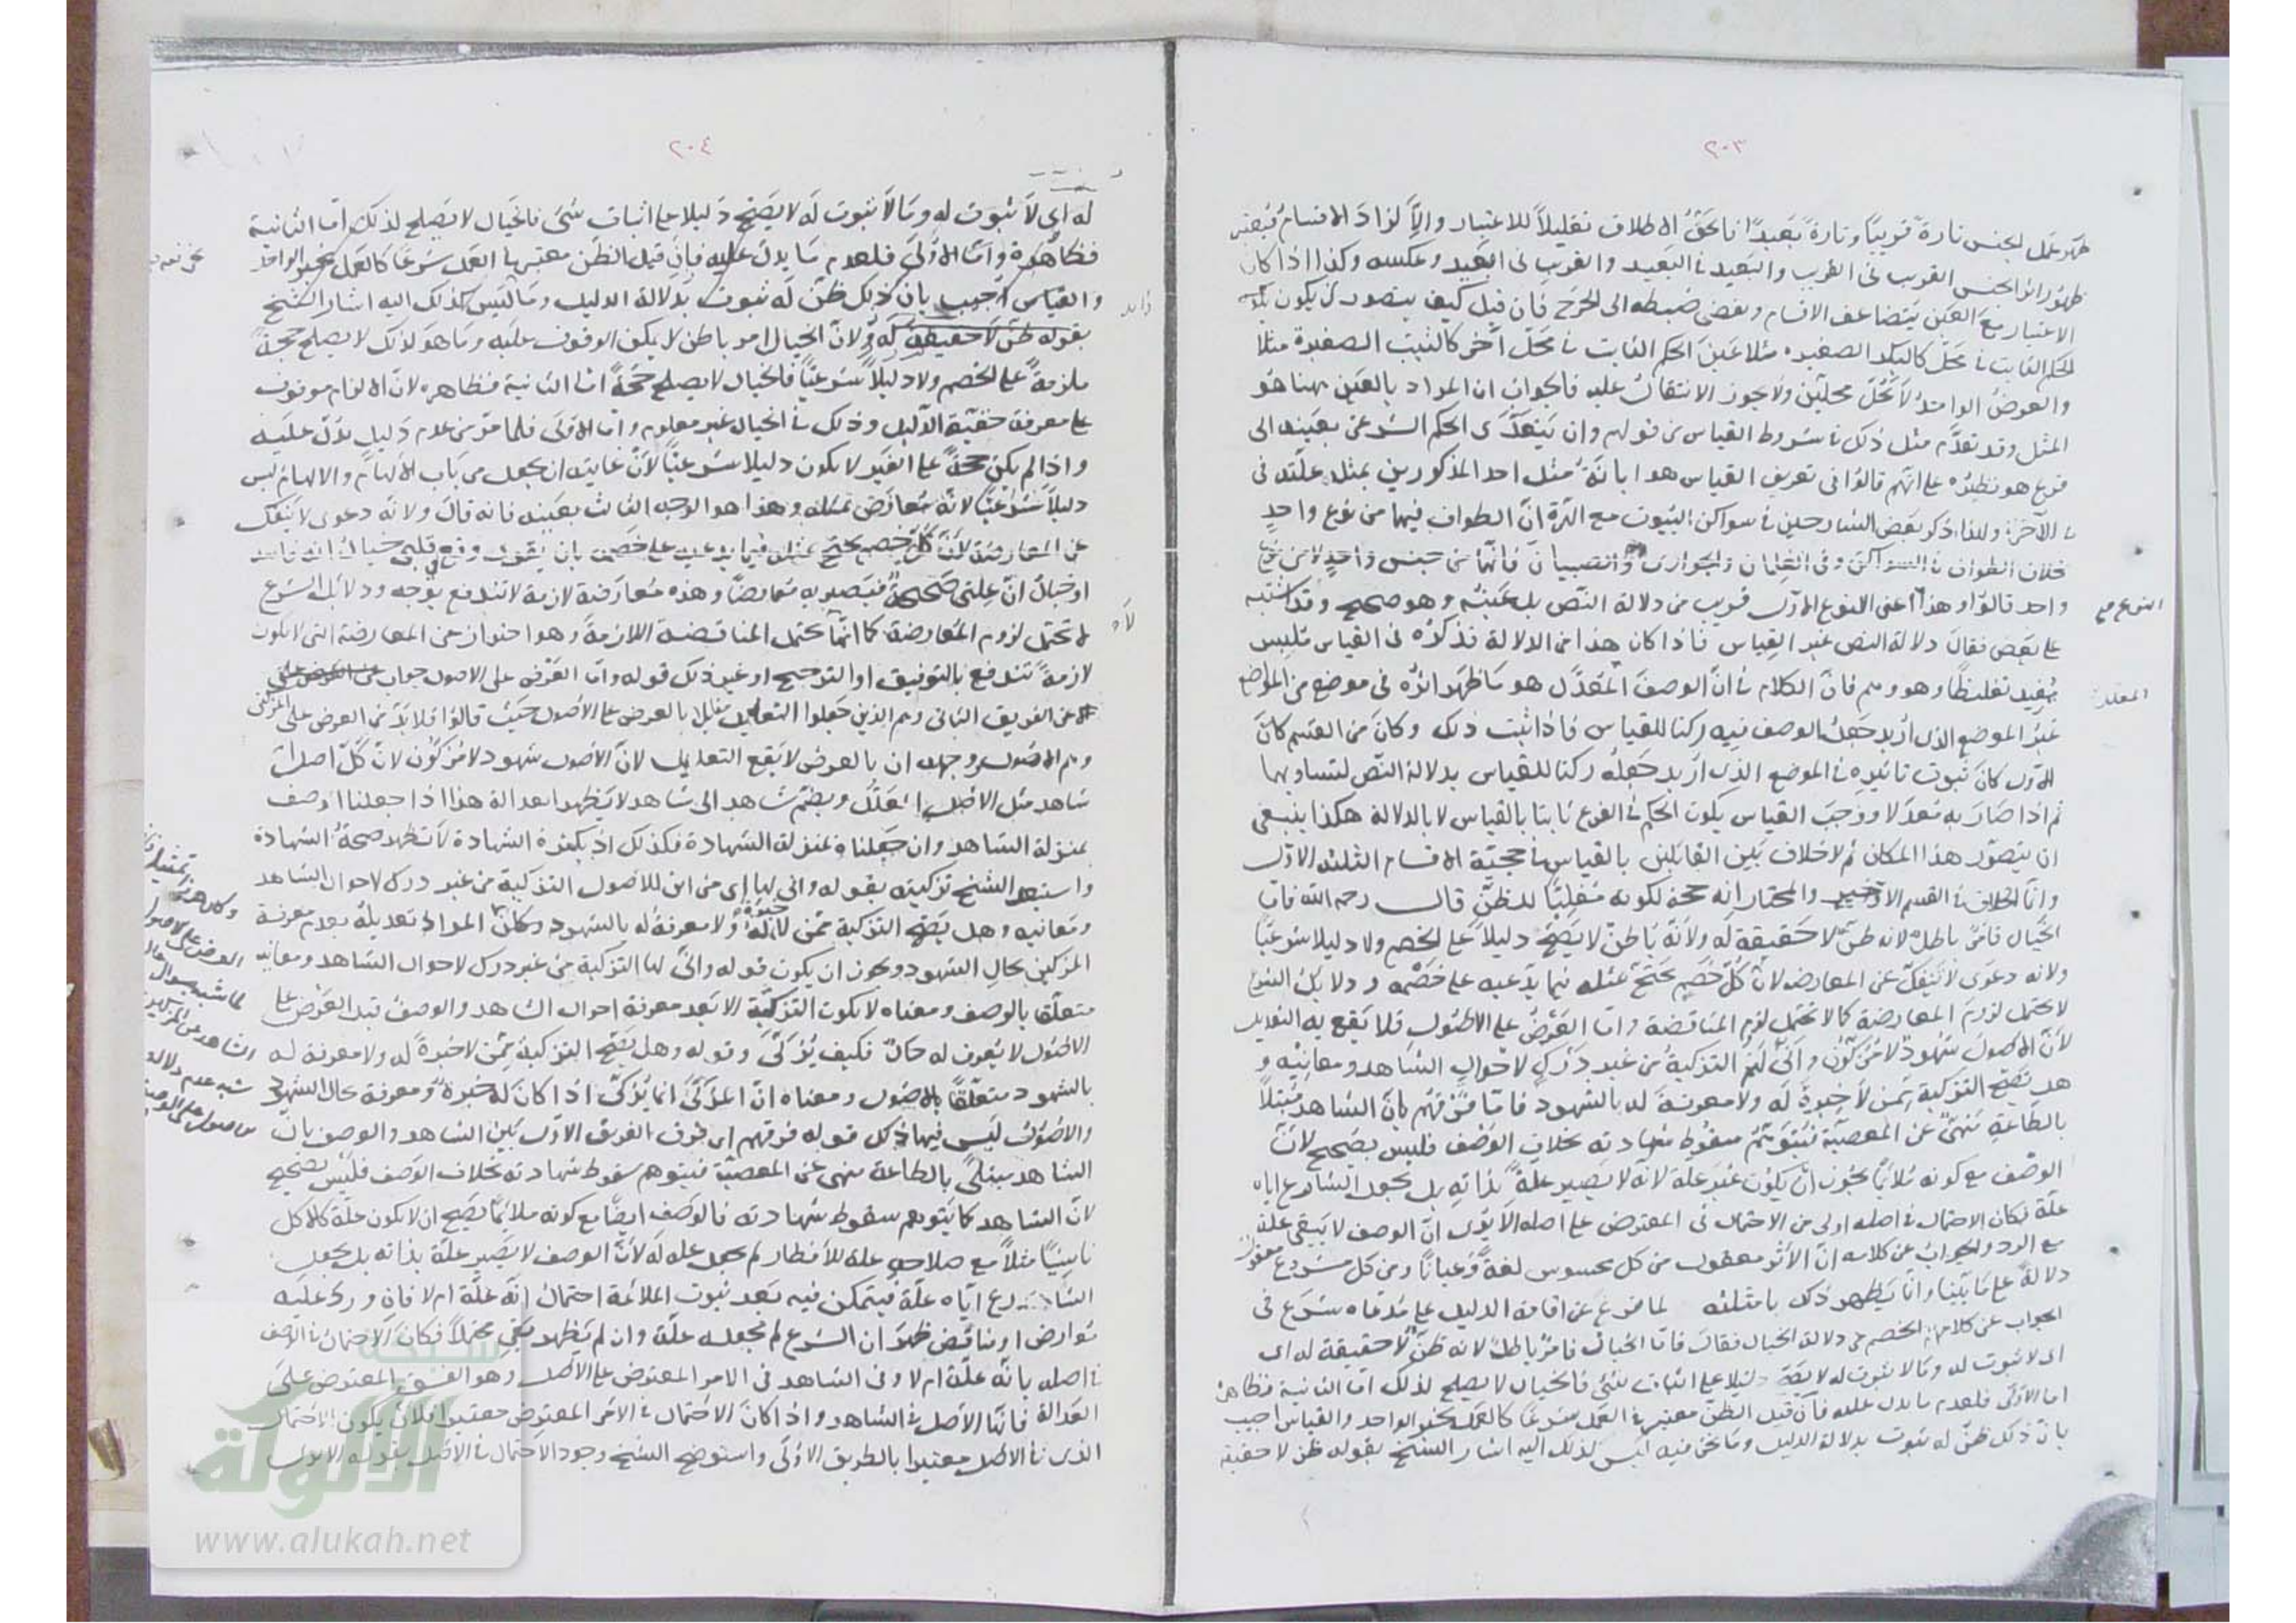 ٢٠٣
ظهر عمل الجنس تارة قريبًا وتارة بعيدًا فالحق الاطلاق تقليلًا للاعتبار والّا لزاد الاقسام فبعض
ظهور اثر الجنس القريب في القريب والبعيد في البعيد والقريب في البعيد وعكسه وكذا اذا كان
الاعتبار مع العين يتضاعف الاقسام ويفضى ضبطه الى الحرج فان قيل كيف يتصور ان يكون
الحكم الثابت في محل كالبكر الصغيرة مثلا عين الحكم الثابت في محل آخر كالثيب الصغيرة مثلا
والعرض الواحد لا يحل محلين ولا يجوز الانتقال عليه فالجواب ان المراد بالعين ههنا هو
المثل وقد تقدم مثل ذلك في شروط القياس من قولهم وان يتعدى الحكم الشرعى بعينه الى
فرع هو نظيره على انهم قالوا في تعريف القياس هو ابانة مثل احد المذكورين بمثل علته في
الآخر ولهذا ذكر بعض الشارحين في سواكن البيوت مع الهرة ان الطواف فيهما من نوع واحد
بخلاف الطواف في السواكن وفي الغلمان والجوارى والصبيان فانهما من جنس واحد لا من نوع
واحد قالوا وهذا اعنى النوع الاول قريب من دلالة النص بل عينه وهو صحيح وقد اشتبه
على بعض فقال دلالة النص غير القياس فاذا كان هذا من الدلالة فذكره في القياس تلبيس
يفيد تغليطًا وهو وهم فان الكلام في ان الوصف المعدل هو ما ظهر اثره في موضع من المواضع
غير الموضع الذى اريد جعل الوصف فيه ركنا للقياس فاذا ثبت ذلك وكان من القسم كان
الاول كان ثبوت تاثيره في الموضع الذى اريد جعله ركنا للقياس بدلالة النص لتساويهما
ثم اذا صار به معدلا ووجب القياس يكون الحكم في الفرع ثابتا بالقياس لا بالدلالة هكذا ينبغى
ان يتصور هذا المكان ثم لا خلاف بين القايلين بالقياس في حجية الاقسام الثلثة الاول
وانما الخلاف في القسم الاخير والمختار انه حجة لكونه مغلبًا للظن قال رحمه الله فاما
الخيال فامر باطل لانه ظن لا حقيقة له ولانه باطن لا يصح دليلًا على الخصم ولا دليلا شرعيًا
ولانه دعوى لا تنفك عن المعارض لان كل خصم يحتج بمثله فيما يدعيه على خصمه ودلايل الشرع
لا تحتمل لزوم المعارضة كما لا تحتمل لزوم المناقضة واما العرض على الاصول فلا يقع به التعديل
لان الاصول شهود لا مزكون وانى لهم التزكية من غير درك لاحوال الشاهد ومعانيه و
هل تصح التزكية ممن لا خبرة له ولا معرفة له بالشهود فاما فرقهم بان الشاهد مبتلًا
بالطاعة منهى عن المعصية فيتوهم سقوط شهادته بخلاف الوصف فليس بصحيح لان
الوصف مع كونه ملائمًا يجوز ان يكون غير علة لانه لا يصير علة بذاته بل بجعل الشارع اياه
علة فكان الاحتمال في اصله اولى من الاحتمال في المعترض على اصله الا يرى ان الوصف لا يبقى علة
مع الرد والجواب عن كلامه ان الاثر معقول من كل محسوس لغة وعيانًا ومن كل مشروع معقول
دلالة على ما بينا وانما يظهر ذلك بامثلته لما فرغ عن اقامة الدليل على مدعاه شرع في
الجواب عن كلام الخصم في دلالة الخيال فقال فاما الخيال فامر باطل لانه ظن لا حقيقة له اى
اى لا ثبوت له وما لا ثبوت له لا يصح دليلا على اثبات شئ فالخيال لا يصلح لذلك اما الثانية فظاهرة
اما الاولى فلعدم ما يدل عليه فان قيل الظن معتبر في العمل شرعًا كالعمل بخبر الواحد والقياس اجيب
بان ذلك ظن له ثبوت بدلالة الدليل وما نحن فيه ليس كذلك اليه اشار الشيخ بقوله ظن لا حقيقة
النوع مع
المعدل
٢٠٤
له اى لا ثبوت له وما لا ثبوت له لا يصح دليلا على اثبات شئ فالخيال لا يصلح لذلك اما الثانية
فظاهرة واما الاولى فلعدم ما يدل عليه فان قيل الظن معتبر في العمل شرعًا كالعمل بخبر الواحد
والقياس اجيب بان ذلك ظن له ثبوت بدلالة الدليل وما ليس كذلك اليه اشار الشيخ
بقوله ظن لا حقيقة له ولان الخيال امر باطن لا يمكن الوقوف عليه وما هو كذلك لا يصلح حجة
ملزمة على الخصم ولا دليلًا شرعيًا فالخيال لا يصلح حجة اما الثانية فظاهرة لان الالزام موقوف
على معرفة حقيقة الدليل وذلك في الخيال غير معلوم واما الاولى فلما مر من عدم دليل يدل عليه
واذا لم يكن حجة على الغير لا يكون دليلا شرعيًا لان غايته ان يجعل من باب الالهام والالهام ليس
دليلًا شرعيًا لانه معارض بمثله وهذا هو الوجه الثالث بعينه فانه قال ولانه دعوى لا ينفك
عن المعارضة لان كل خصم يحتج بمثله فيما يدعيه على خصمه بان يقول وقع في قلبى خيال انه فاسد
او خيال ان علتى صحيحة فيصير به معارضًا وهذه معارضة لازمة لا تندفع بوجه ودلايل الشرع
لا تحتمل لزوم المعارضة كما انها لا تحتمل المناقضة اللازمة وهو احتراز عن المعارضة التى لا تكون
لازمة تندفع بالتوفيق او الترجيح او غير ذلك قوله واما العرض على الاصول جواب
عن الفريق الثانى وهم الذين جعلوا التعديل مقابلا بالعرض على الاصول حيث قالوا فلا بد من العرض على المزكى
وهم الاصول ووجهه ان بالعرض لا يقع التعديل لان الاصول شهود لا مزكون لان كل اصل
شاهد مثل الاصل المعلل وبضم شاهد الى شاهد لا تظهر العدالة هذا اذا جعلنا الوصف
بمنزلة الشاهد وان جعلناه بمنزلة الشهادة فكذلك اذ بكثرة الشهادة لا تظهر صحة الشهادة
واستبعد الشيخ تزكيته بقوله وانى لها اى من اين للاصول التزكية من غير درك لاحوال الشاهد
ومعانيه وهل تصح التزكية ممن لا خبرة له ولا معرفة له بالشهود وكان المراد تعديله بعدم معرفة
المزكين بحال الشهود ويجوز ان يكون قوله وانى لها التزكية من غير درك لاحوال الشاهد ومعانيه
متعلقا بالوصف ومعناه لا يكون التزكية الا بعد معرفة احوال الشاهد والوصف قبل العرض على
الاصول لا يعرف له حال فكيف يزكى وقوله وهل تصح التزكية ممن لا خبرة له ولا معرفة له
بالشهود متعلقًا بالاصول ومعناه ان المزكى انما يزكى اذا كان له خبرة ومعرفة بحال الشهود
والاصول ليس فيها ذلك قوله فرقهم اى فرق الفريق الاول بين الشاهد والوصف بان
الشاهد مبتلى بالطاعة منهى عن المعصية فيتوهم سقوط شهادته بخلاف الوصف فليس بصحيح
لان الشاهد كما يتوهم سقوط شهادته فالوصف ايضًا مع كونه ملائمًا يصح ان لا يكون علة كالاكل
ناسيًا مثلًا مع صلاحه علة للافطار لم يجعل علة له لان الوصف لا يصير علة بذاته بل بجعل
الشارع اياه علة فيتمكن فيه بعد ثبوت الملائمة احتمال انه علة ام لا فان ورد عليه
عوارض او مناقض ظهر ان الشرع لم يجعله علة وان لم يظهر بقى محتملًا فكان الاحتمال في الوصف
في اصله بانه علة ام لا وفي الشاهد في الامر المعترض على الاصل وهو الفسق المعترض على
العدالة فانها الاصل في الشاهد واذا كان الاحتمال في الامر المعترض معتبرا فلان يكون الاحتمال
الذى في الاصل معتبرا بالطريق الاولى واستوضح الشيخ وجود الاحتمال في الاصل بقوله الا يرى
زايد
الألوكة
www.alukah.net